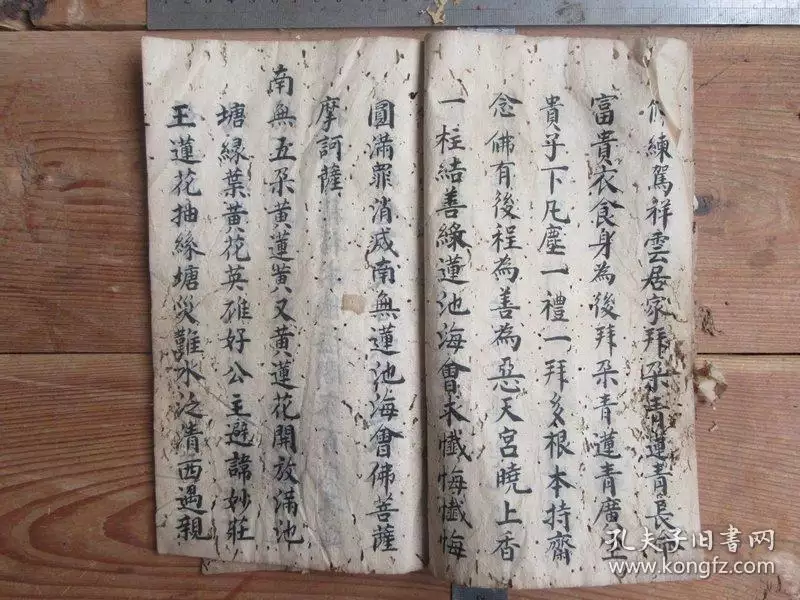 修練駕祥雲居家拜朵青蓮青長命
富貴衣食身為後拜朵青蓮青廣
貴子下凡塵一禮一拜多根本持齋
念佛有後程為善為惡天宮曉上香
一柱結善緣蓮池海會末懺悔懺悔
圓滿罪消滅南無蓮池海會佛菩薩
摩訶薩
南無五朵黃蓮黃又黃蓮花開放滿池
塘綠葉黃花英碓好公主避諱妙莊
王蓮花抽絲塘災難水泛清西遇親
孔夫子旧书网
www.kongfz.com